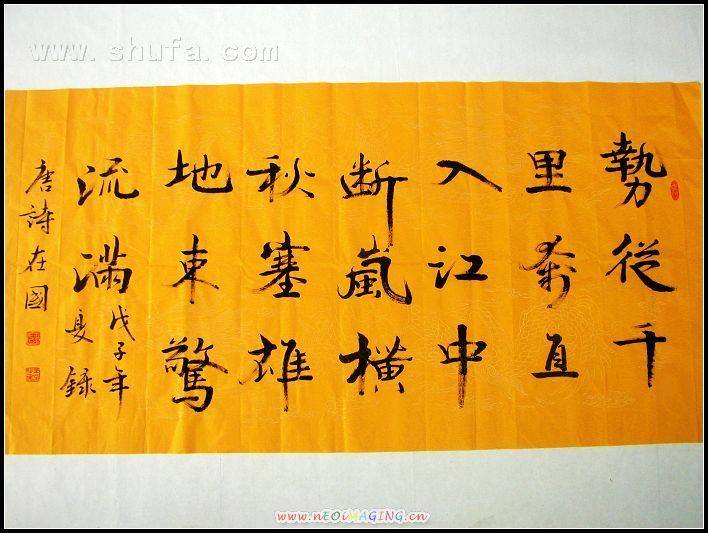 www.shufa.com
勢從千
里奔直
入江中
断嵐横
秋塞雄
地東驚
流滿
戊子年
夏錄
唐詩在國
www.nEOiMAGING.cn